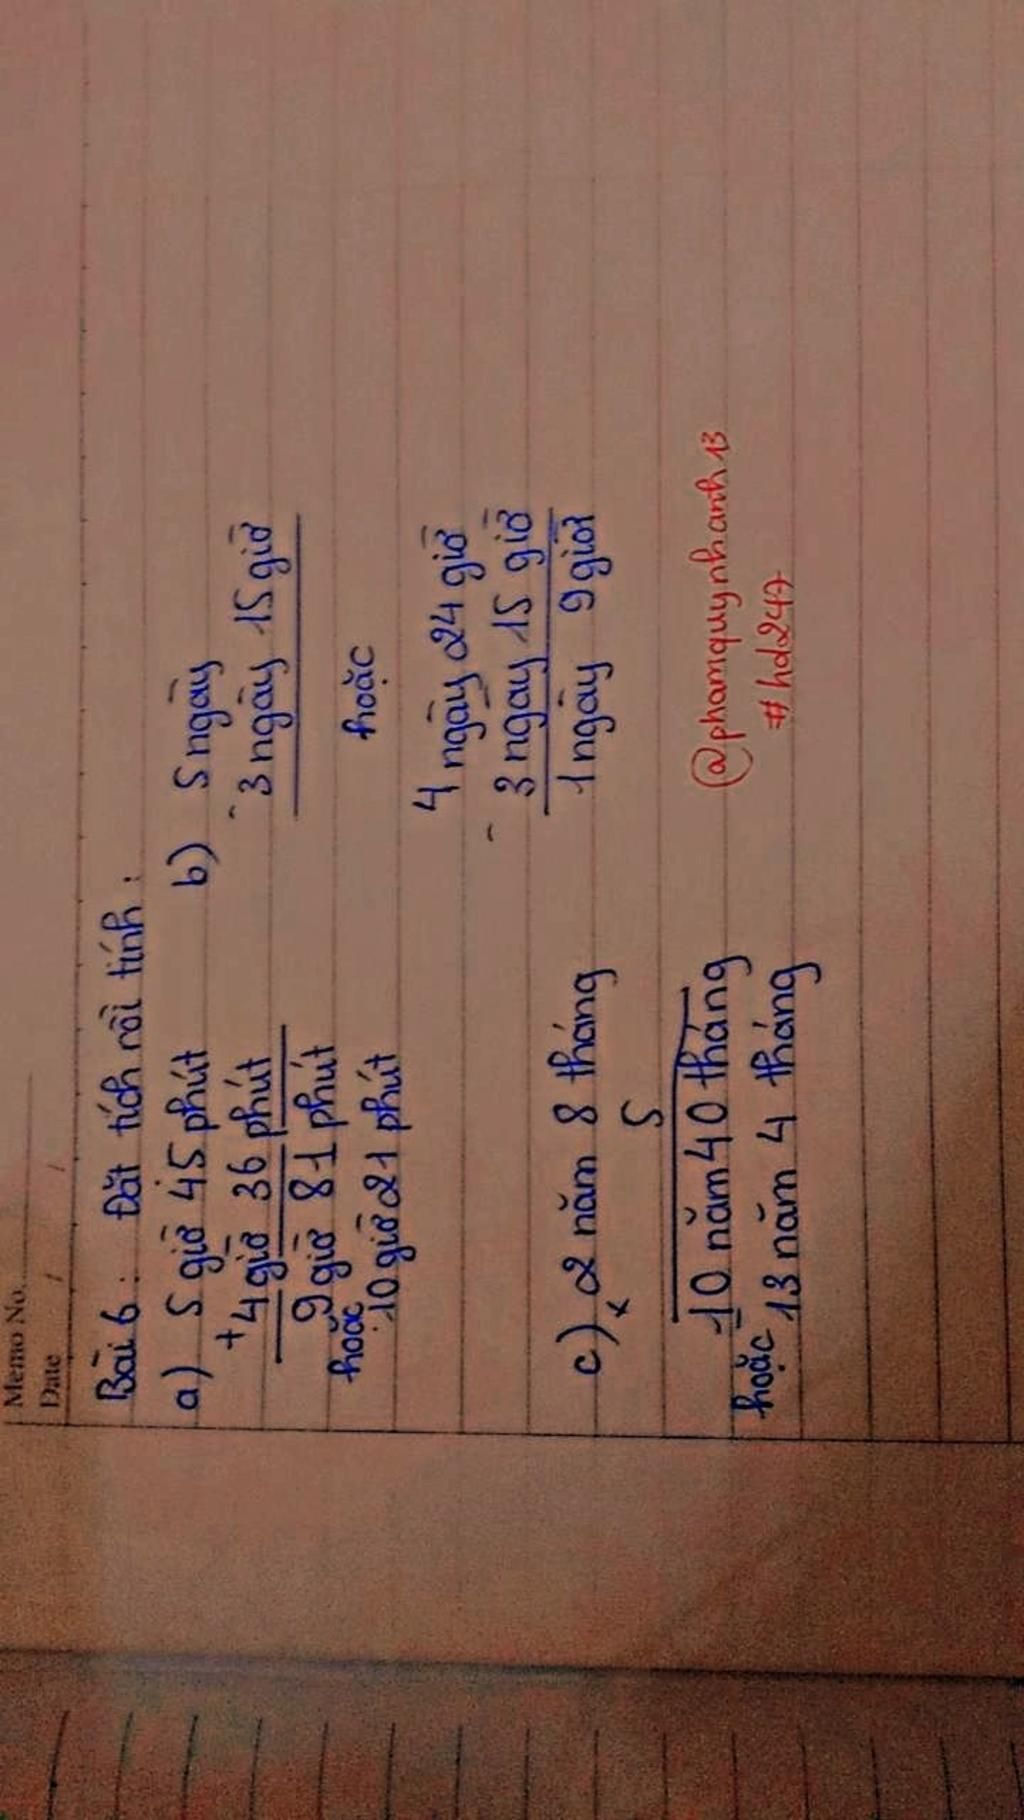 Memo No.
Date / /
Bài 6: Đặt tích rồi tính:
a) 5 giờ 45 phút
+ 4 giờ 36 phút
9 giờ 81 phút
hoặc
10 giờ 21 phút
b) 5 ngày
- 3 ngày 15 giờ
hoặc
4 ngày 24 giờ
- 3 ngay 15 giờ
1 ngày 9 giời
c) 2 năm 8 tháng
x 5
10 năm 40 tháng
hoặc 13 năm 4 tháng
@phamquynhanh13
#hd247